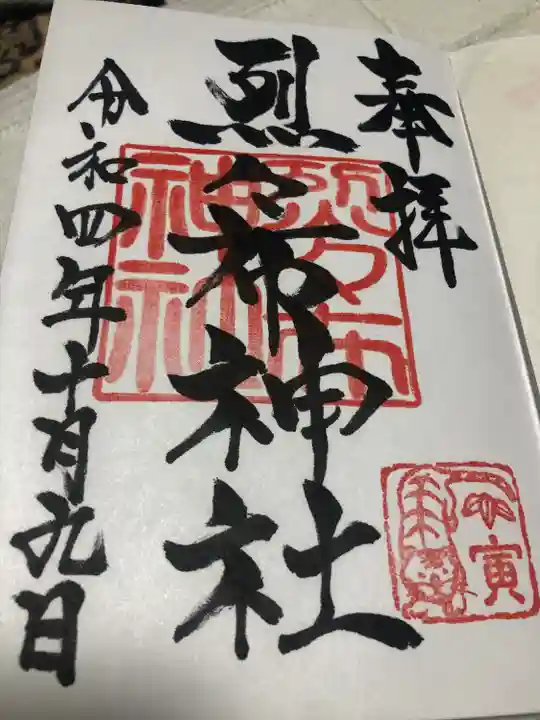 奉拝
烈々布神社
令和四年十月九日
烈々布
神社
壬寅